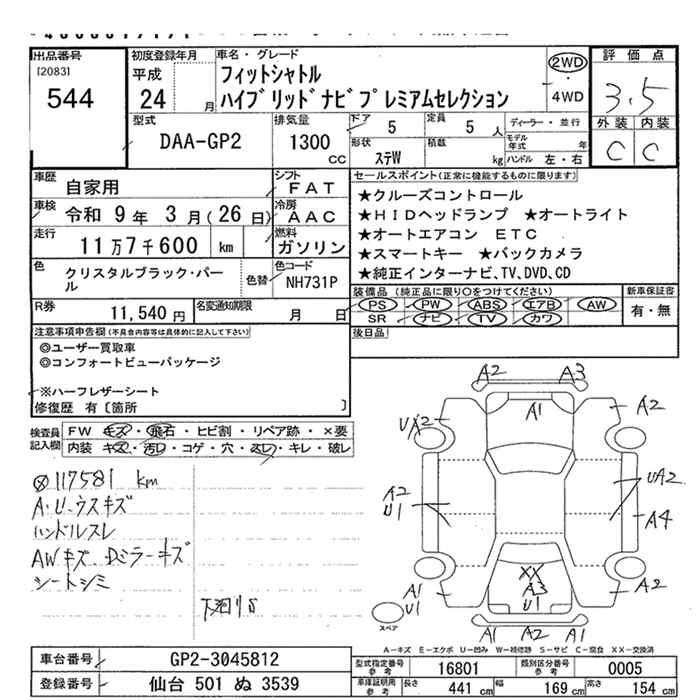 出品番号
[2083]
544
初度登録年月
平成
24 月
車名・グレード
フィットシャトル
ハイブリッドナビプレミアムセレクション
2WD
4WD
評価点
3.5
外装 内装
C C
型式
DAA-GP2
排気量
1300
CC
ドア 5
定員 5 人
ディーラー・並行
形状
ステW
積載
kg
モデル年式 年
ハンドル 左・右
車歴 自家用
シフト
FAT
車検 令和 9年 3月(26日)
冷房
AAC
走行 11万7千600 km
燃料
ガソリン
色
クリスタルブラック・パール
色替
色コード
NH731P
R券 11,540円
名変通知期限
月 日
セールスポイント(正常に機能するものに限ります)
★クルーズコントロール
★HIDヘッドランプ ★オートライト
★オートエアコン ETC
★スマートキー ★バックカメラ
★純正インターナビ、TV、DVD、CD
装備品(純正品に限り○をつけてください)
新車保証書
PS PW ABS エアB AW
SR ナビ TV カワ
有・無
後日品
注意事項申告欄(不具合内容等は具体的に記入して下さい)
◎ユーザー買取車
◎コンフォートビューパッケージ
※ハーフレザーシート
修復歴 有〔箇所 〕
検査員記入欄
FW キズ・飛石・ヒビ割・リペア跡・×要
内装 キズ・汚レ・コゲ・穴・スレ・キレ・破レ
117581 km
A・U・ウスキズ
ハンドルスレ
AWキズ Dミラーキズ
シートシミ
下廻りS
A2 A3
A1
UA2 A2
A2
U1
UA2
A4
XX
A3
U1
A1
U1
A2
スペア
A1 A2 A1
A-キズ E-エクボ U-凹み W-補修跡 S-サビ C-腐食 XX-交換済
車台番号 GP2-3045812
登録番号 仙台 501 ぬ 3539
型式指定番号
参考
16801
類別区分番号
参考
0005
車庫証明用
参考
長さ 441 cm 幅 169 cm 高さ 154 cm